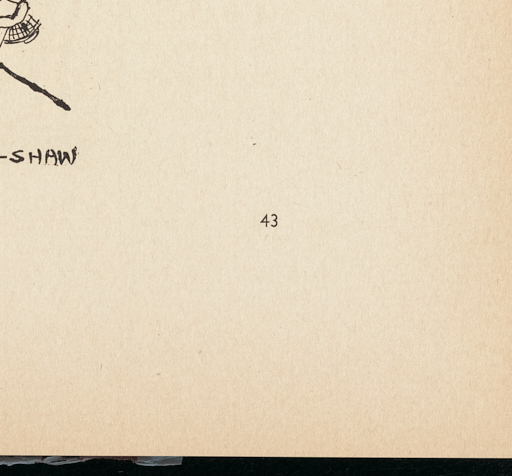 -SHAW
43